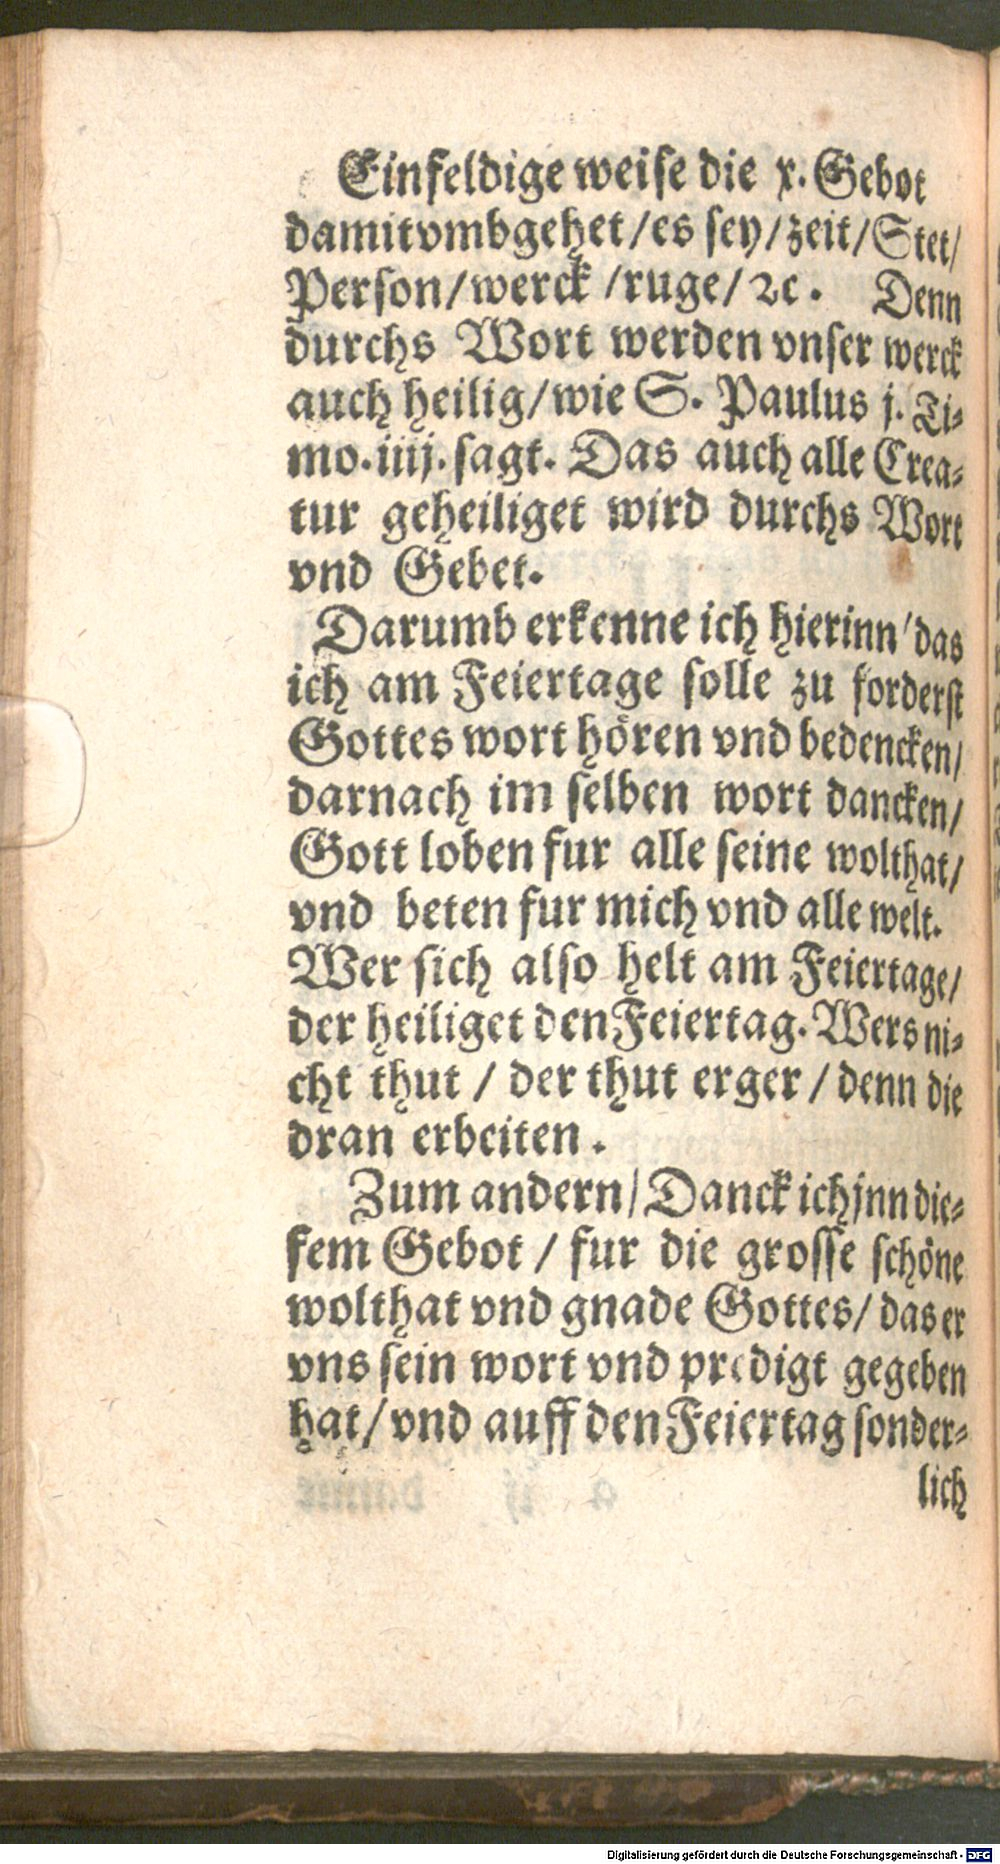 Einfeldige weise die x. Gebot
damit vmbgehet / es sey / zeit / Stet /
Person / werck / ruge / ꝛc. Denn
durchs Wort werden vnser werck
auch heilig / wie S. Paulus j. Ti-
mo. iiij. sagt. Das auch alle Crea-
tur geheiliget wird durchs Wort
vnd Gebet.
Darumb erkenne ich hierinn / das
ich am Feiertage solle zu forderst
Gottes wort hören vnd bedencken /
darnach im selben wort dancken /
Gott loben fur alle seine wolthat /
vnd beten fur mich vnd alle welt.
Wer sich also helt am Feiertage /
der heiliget den Feiertag. Wers ni-
cht thut / der thut erger / denn die
dran erbeiten.
Zum andern / Danck ich jnn die-
sem Gebot / fur die grosse schöne
wolthat vnd gnade Gottes / das er
vns sein wort vnd predigt gegeben
hat / vnd auff den Feiertag sonder-
lich
Digitalisierung gefördert durch die Deutsche Forschungsgemeinschaft - DFG